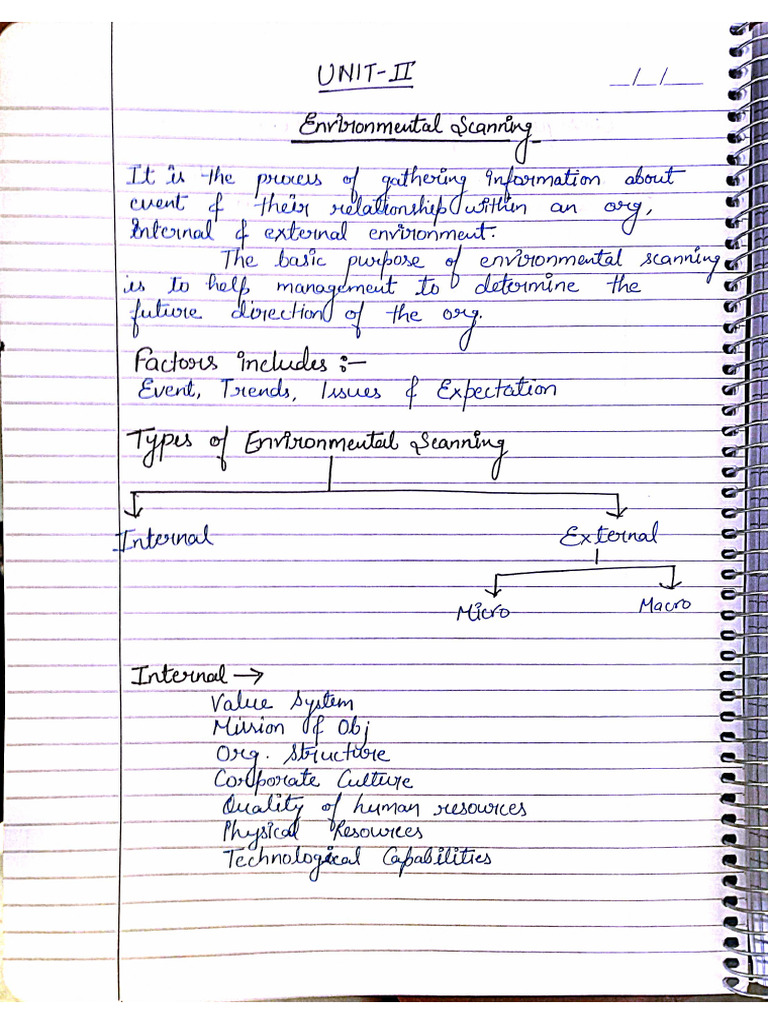 UNIT-II
__/__/____
Environmental Scanning
It is the process of gathering information about
event & their relationship within an org,
Internal & external environment.
The basic purpose of environmental scanning
is to help management to determine the
future direction of the org.
Factors includes :-
Event, Trends, Issues & Expectation
Types of Environmental Scanning
Internal External
Micro Macro
Internal →
Value System
Mission & Obj
Org. Structure
Corporate Culture
Quality of human resources
Physical Resources
Technological Capabilities